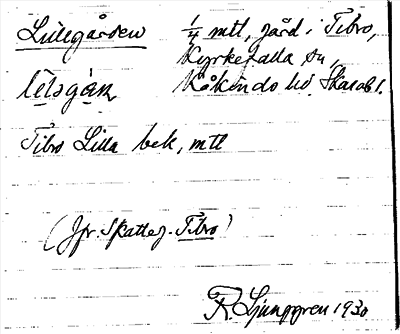 Lillegården 1/4 mtl, järd i Tibro,
Kyrkefalla sn,
Kåkinds hd Skarab l.
Tibro Lilla bek, mtl
(Jfr Skatteg. Tibro)
R. Ljunggren 1930